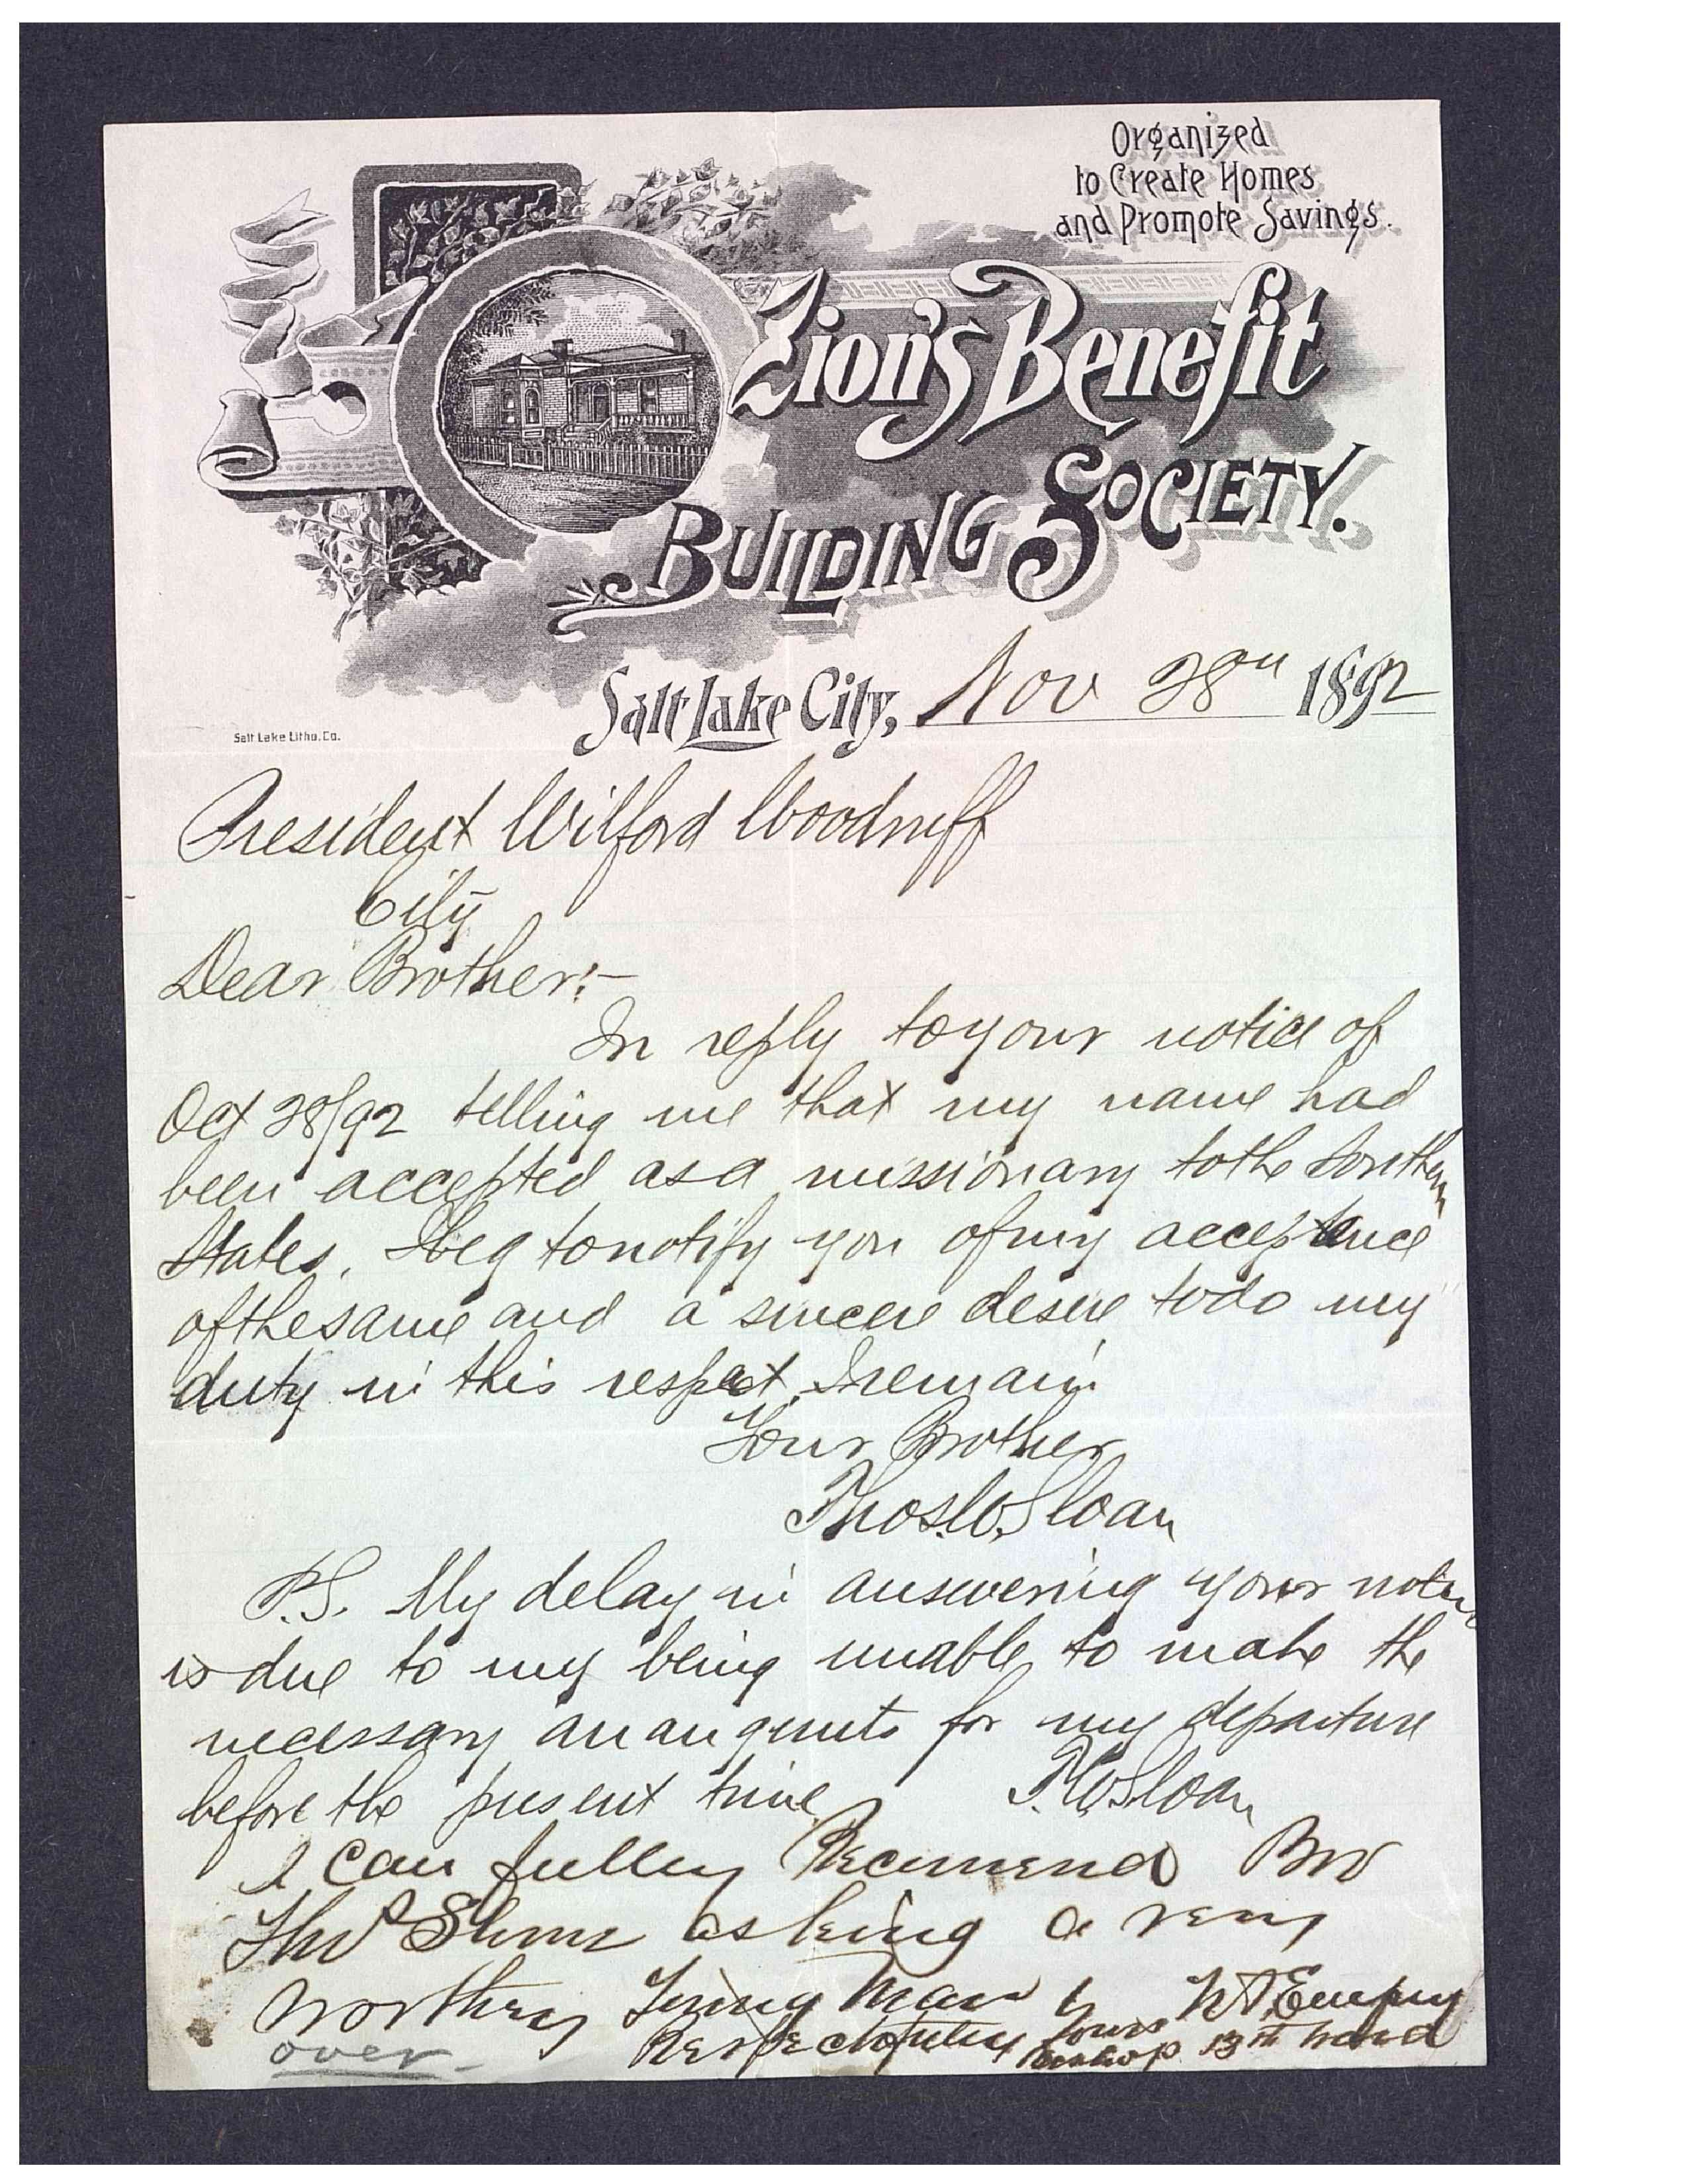 Organized
to Create Homes
and Promote Savings.
Zion's Benefit
Building Society.
Salt Lake City, Nov 28th 1892
Salt Lake Litho. Co.
President Wilford Woodruff
City
Dear Brother:-
In reply to your notice of
Oct 28/92 telling me that my name had
been accepted as a missionary to the Southern
States. I beg to notify you of my acceptance
of the same and a sincere desire to do my
duty in this respect. I remain
Your Brother
Thos. W. Sloan
P.S. My delay in answering your notice
is due to my being unable to make the
necessary arrangmts for my departure
before the present time T.W. Sloan
I can fully Recumend Bro
Thos Sloan as being a very
worthy Young Man
Respectfully yours
Bishop 13th Ward
over